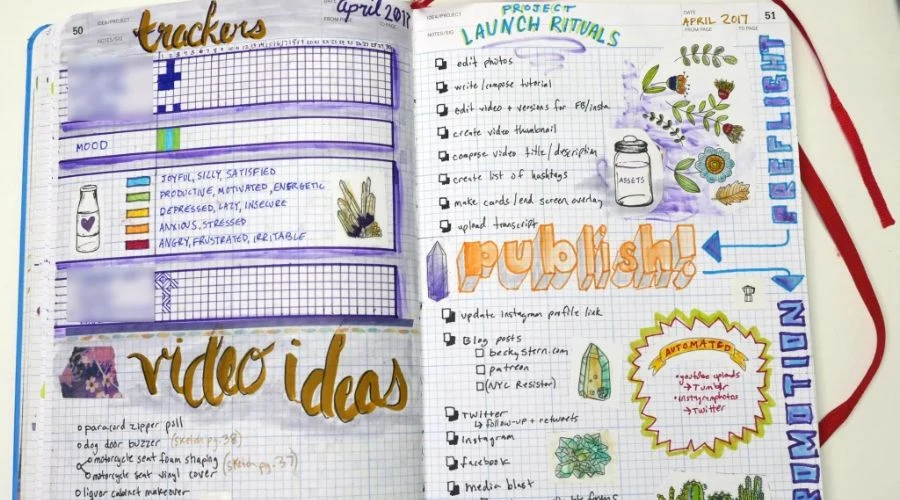 50
IDEA/PROJECT
NOTES/SIG
DATE
FROM PAGE
TO PAGE
april 2017
trackers
MOOD
JOYFUL, SILLY, SATISFIED
PRODUCTIVE, MOTIVATED, ENERGETIC
DEPRESSED, LAZY, INSECURE
ANXIOUS, STRESSED
ANGRY, FRUSTRATED, IRRITABLE
video ideas
paracord zipper pull
dog door buzzer (sketch pg. 38)
motorcycle seat foam shaping
motorcycle seat vinyl cover (sketch pg. 37)
liquor cabinet makeover
IDEA/PROJECT
NOTES/SIG
PROJECT
LAUNCH RITUALS
DATE
APRIL 2017
FROM PAGE
TO PAGE
51
edit photos
write/compose tutorial
edit video + versions for FB/insta
create video thumbnail
compose video title/description
create list of hashtags
make cards/end screen overlay
upload transcript
ASSETS
PREFLIGHT
publish!
update instagram profile link
Blog posts
beckystern.com
patreon
(NYC Resistor)
Twitter
↳ follow-up + retweets
Instagram
facebook
media blast
AUTOMATED
• youtube uploads
→ Tumblr
• instagram photos
→ Twitter
ROMOTION